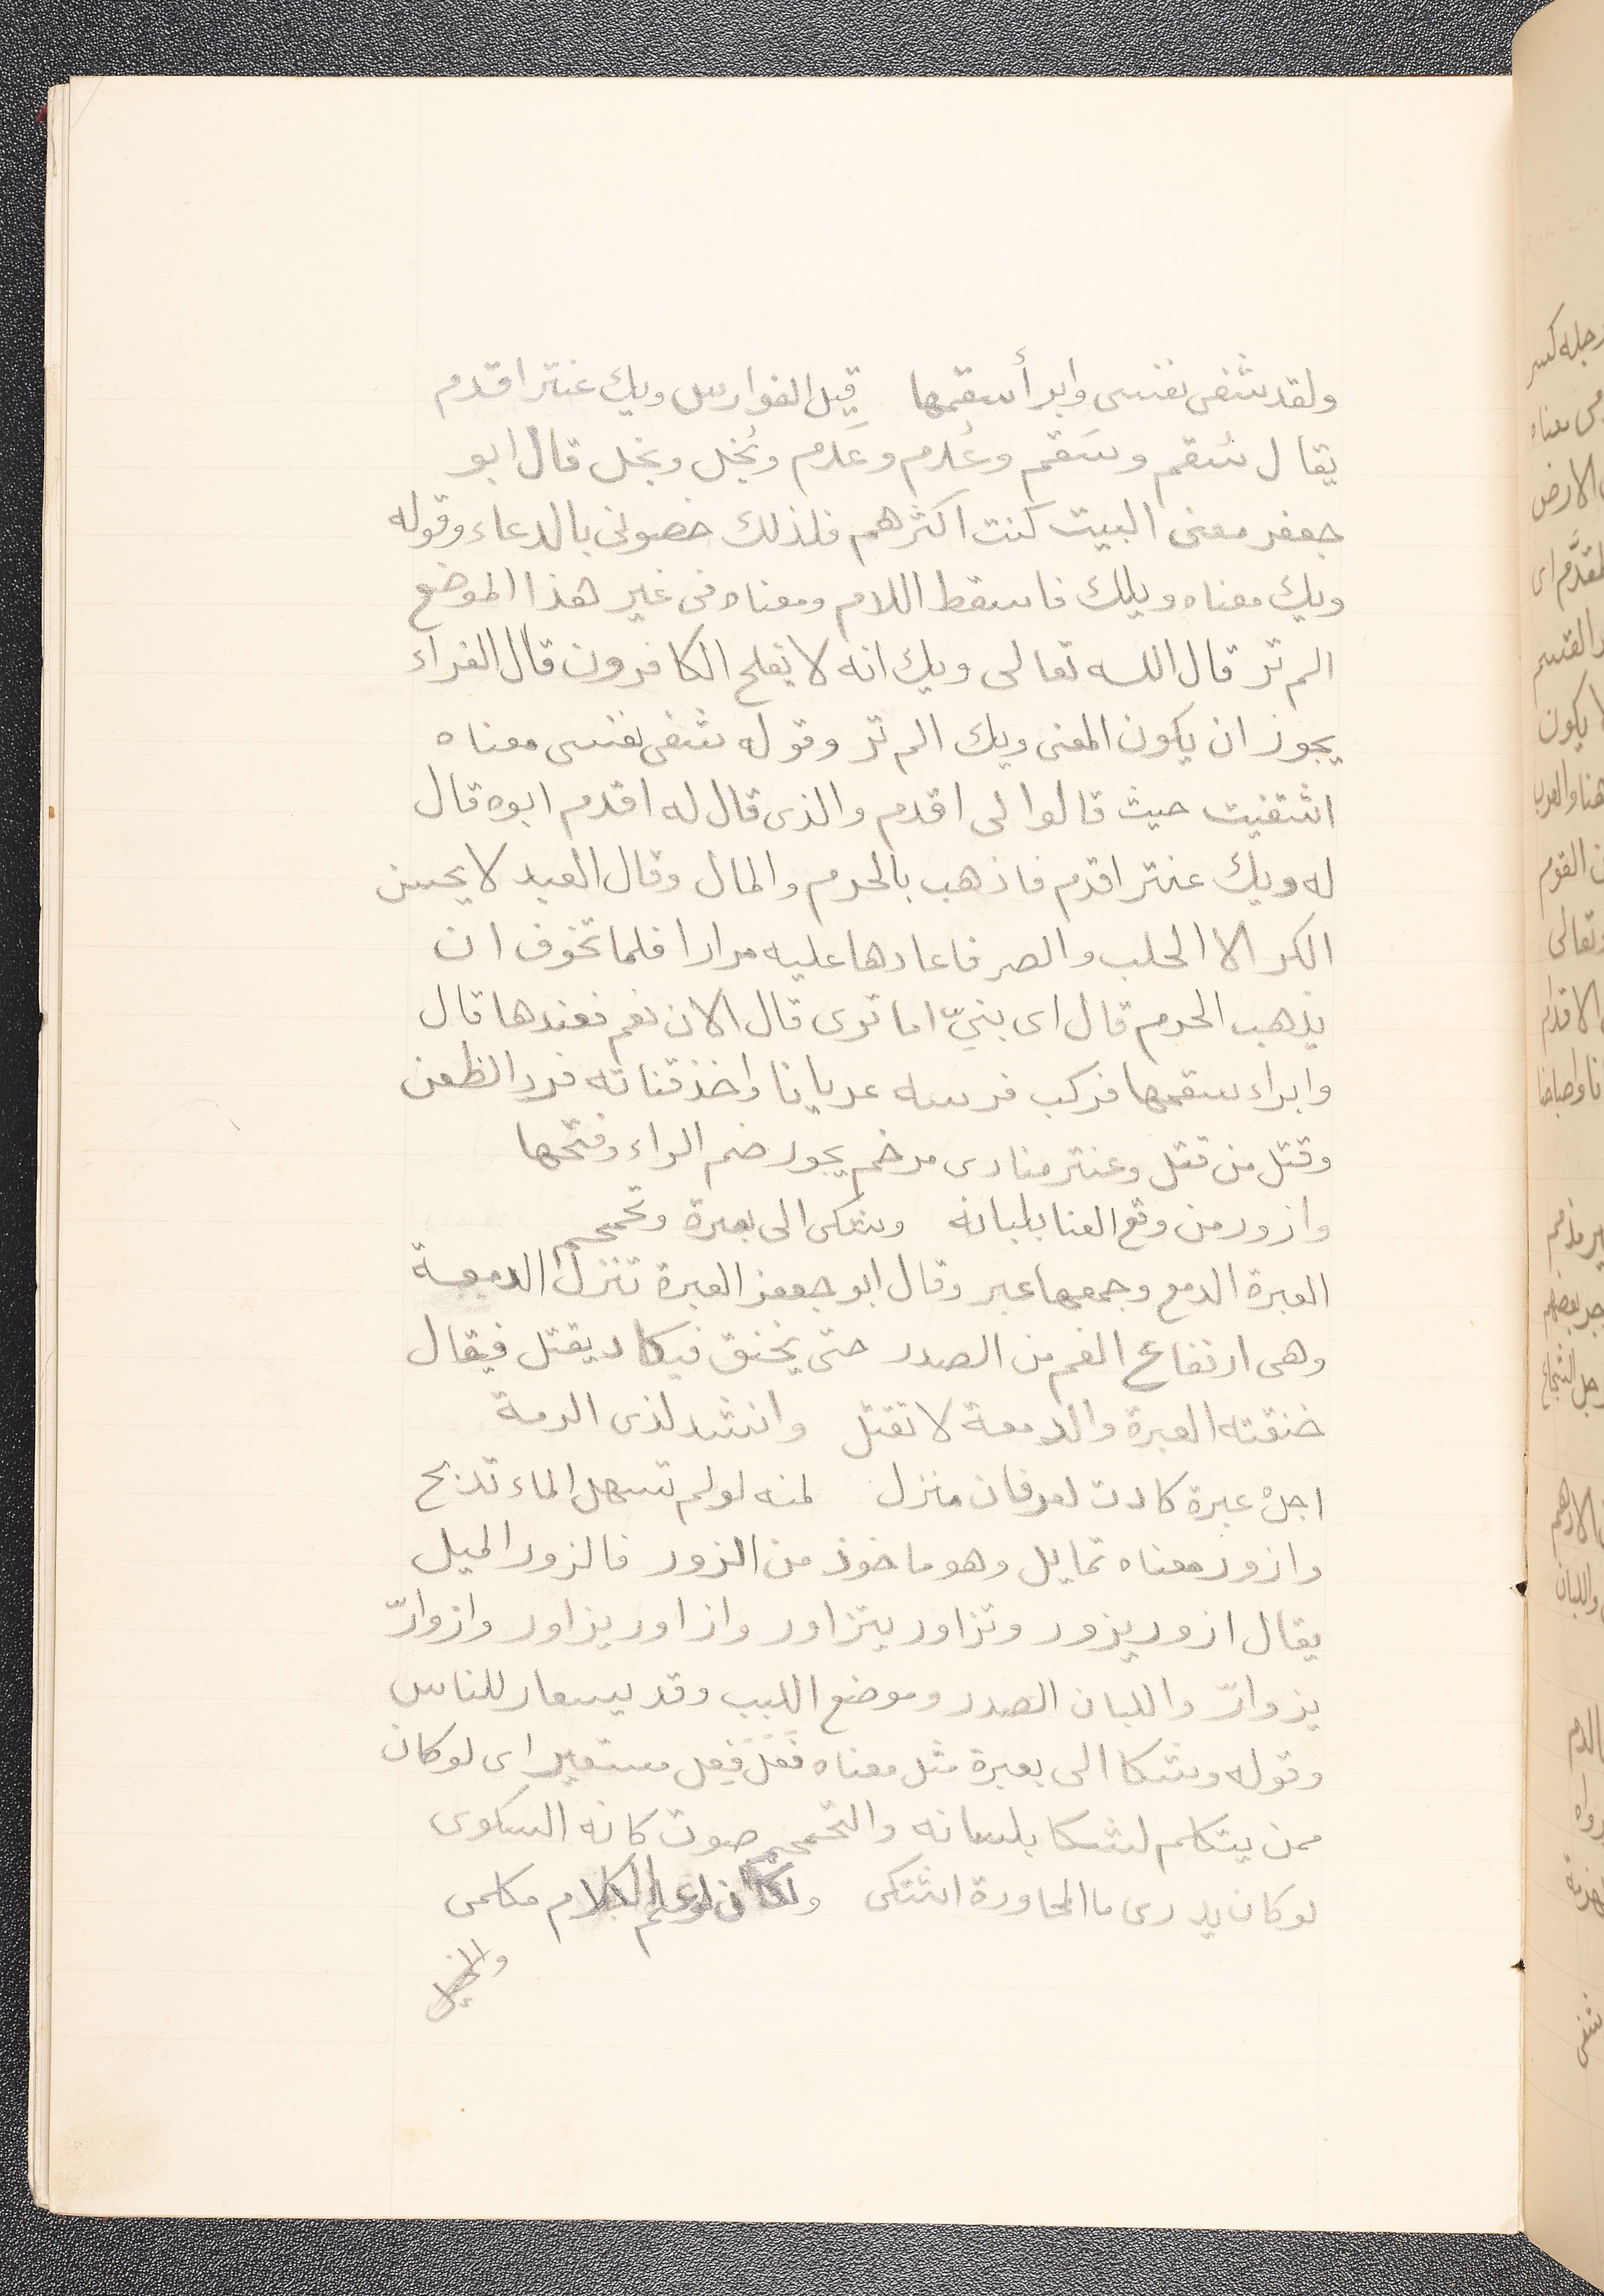 ولقد شفى نفسى وابرأ سقمها قيل الفوارس ويك عنتر اقدم
يقال سُقم وسَقم وعُدم وعَدم وبُخل وبَخل قال ابو
جعفر معنى البيت كنت اكثرهم فلذلك خصونى بالدعاء وقوله
ويك معناه ويلك فاسقط اللام ومعناه فى غير هذا الموضع
الم تر قال الله تعالى ويك انه لا يفلح الكافرون قال الفراء
يجوز ان يكون المعنى ويك الم تر وقوله شفى نفسى معناه
اشتفيت حيث قالوا لى اقدم والذى قال له اقدم ابوه قال
له ويك عنتر اقدم فاذهب بالحرم والمال وقال العبد لا يحسن
الكر الا الحلب والصر فاعادها عليه مرارا فلما تخوف ان
يذهب الحرم قال اى بنىّ اما ترى قال الان نعم فعندها قال
وابراء سقمها فركب فرسه عريانا واخذ قناته فرد الظعن
وقتل من قتل وعنتر منادى مرخم يجور ضم الراء وفتحها
وازور من وقع القنا بلبانه وشكى الى بعبرة وتحمحم
العبرة الدمع وجمعها عبر وقال ابو جعفر العبرة تنزل الدمعة
وهى ارتفاع الغم من الصدر حتى يخنق فيكاد يقتل فيقال
خنقته العبرة والدمعة لا تقتل وانشد لذى الرمة
اجلْ عبرة كادت لعرفان منزل لمنه لو لم تسهل الماء تذبح
وازور معناه تمايل وهو ماخوذ من الزور فالزور الميل
يقال ازور يزور وتزاور يتزاور وازاور يزاور وازوارّ
يزوارّ واللبان الصدر وموضع اللبب وقد يسعار للناس
وقوله وشكا الى بعبرة مثل معناه فعَلَ فِعل مستعبر اى لو كان
ممن يتكلم لشكا بلسانه والتحمحم صوت كانه السكوى
لو كان يدرى ما المحاورة اشتكى ولكان لو علم الكلام مكلمى
والخيل